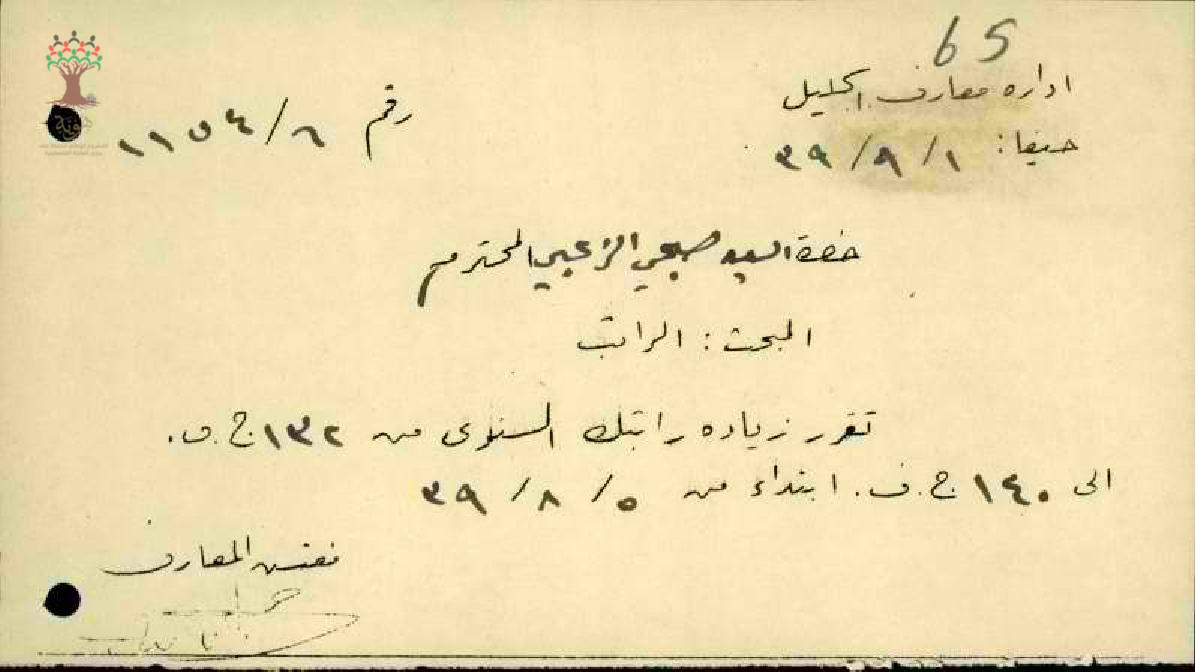 65
ادارة معارف الجليل
حيفا: ١ / ٩ / ٣٩
رقم ٦ / ١١٥٤
حضرة السيد صبحي الزعبي المحترم
المبحث: الراتب
تقرر زيادة راتبك السنوي من ١٣٢ ج.ف.
الى ١٤٠ ج.ف. ابتداء من ٥ / ٨ / ٣٩
مفتش المعارف